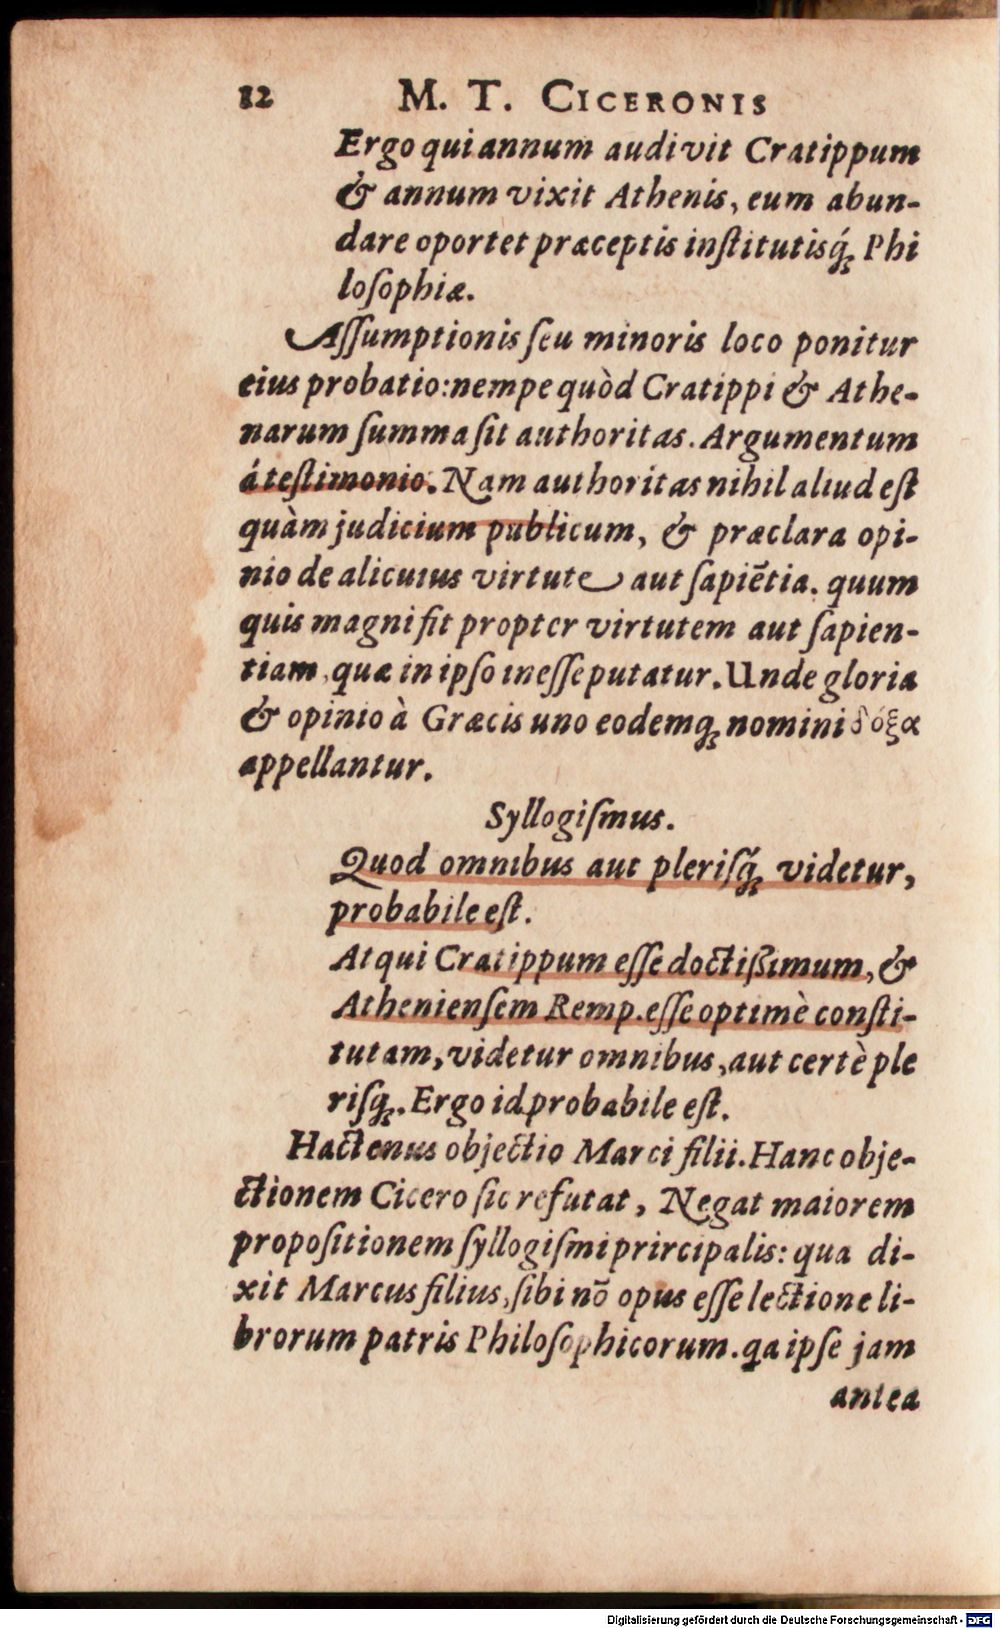 12 M. T. CICERONIS
Ergo qui annum audivit Cratippum
& annum vixit Athenis, eum abun-
dare oportet præceptis inſtitutisq́; Phi
loſophiæ.
Aſſumptionis ſeu minoris loco ponitur
eius probatio: nempe quòd Cratippi & Athe-
narum ſumma ſit authoritas. Argumentum
á teſtimonio. Nam authoritas nihil aliud eſt
quàm judicium publicum, & præclara opi-
nio de alicuius virtute aut ſapiẽtia. quum
quis magni fit propter virtutem aut ſapien-
tiam, quæ in ipſo ineſſe putatur. Unde gloria
& opinio à Græcis uno eodemq; nomini δόξα
appellantur.
Syllogiſmus.
Quod omnibus aut pleriſq́; videtur,
probabile eſt.
Atqui Cratippum eſſe doctißimum, &
Athenienſem Remp. eſſe optimè conſti-
tutam, videtur omnibus, aut certè ple
riſq;. Ergo id probabile eſt.
Hactenus objectio Marci filii. Hanc obje-
ctionem Cicero ſic refutat, Negat maiorem
propoſitionem ſyllogiſmi prircipalis: qua di-
xit Marcus filius, ſibi nõ opus eſſe lectione li-
brorum patris Philoſophicorum. qa ipſe jam
antea
Digitalisierung gefördert durch die Deutsche Forschungsgemeinschaft - DFG